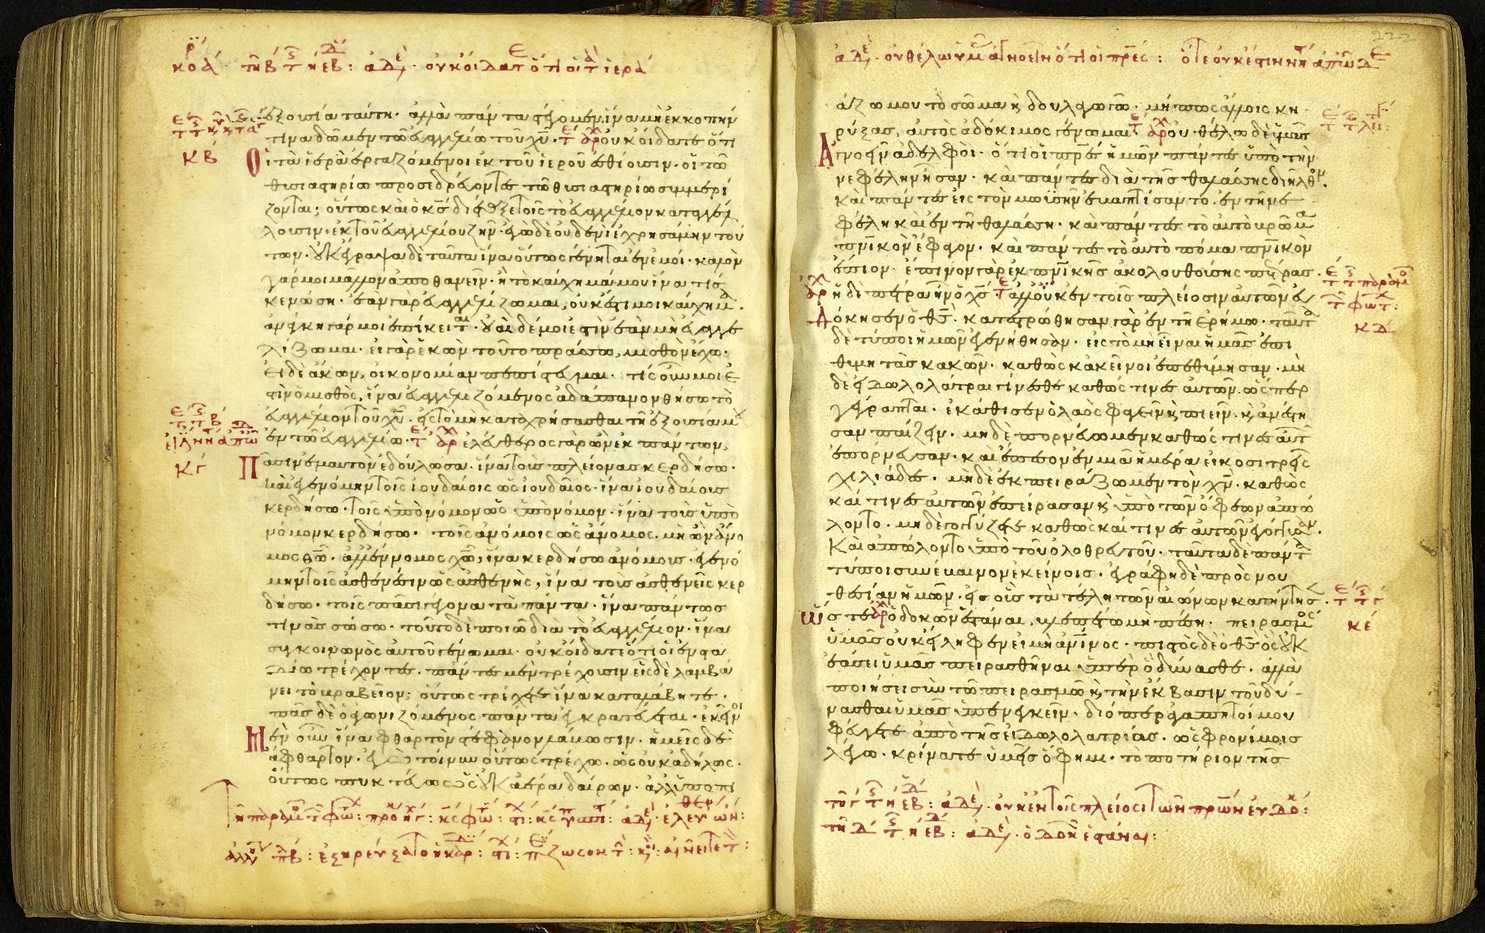 τῆ β τ ς ἡ ἑβ: ἀδε· οὐκ οἴδατε ὅτι οἱ τ ἱερά
ἐξουσία ταύτη· ἀλλὰ πάντα στέγομεν ἵνα μὴ ἐκκοπὴν
τινὰ δῶμεν τῶ εὐαγγελίω τοῦ χυ· οὐκ οἴδατε ὅτι
ΚΒ
Οἱ τὰ ἱερὰ ἐργαζόμενοι ἐκ τοῦ ἱεροῦ ἐσθίουσιν· οἱ τῶ
θυσιαστηρίω προσεδρεύοντες τῶ θυσιαστηρίω συμμερί
ζονται; οὕτως καὶ ὁ κς διέταξε τοῖς τὸ εὐαγγέλιον καταγγέλ
λουσιν· ἐκ τοῦ εὐαγγελίου ζῆν· ἐγὼ δὲ οὐδενὶ ἐχρησάμην τού
των· οὐκ ἔγραψα δὲ ταῦτα ἵνα οὕτως γένηται ἐν ἐμοί· καλὸν
γάρ μοι μᾶλλον ἀποθανεῖν· ἢ τὸ καύχημά μου ἵνα τίς
κενώση· ἐὰν γὰρ εὐαγγελίζωμαι, οὐκ ἔστι μοι καύχημα·
ἀνάγκη γάρ μοι ἐπίκειται· οὐαὶ δέ μοι ἐστὶν ἐὰν μὴ εὐαγγε
λίζωμαι· εἰ γὰρ ἑκὼν τοῦτο πράσσω, μισθὸν ἔχω·
εἰ δὲ ἄκων, οἰκονομίαν πεπίστευμαι· τίς οὖν μοι ἐ
στὶν ὁ μισθός, ἵνα εὐαγγελιζόμενος ἀδάπανον θήσω τὸ
εὐαγγέλιον τοῦ χυ· εἰς τὸ μὴ καταχρήσασθαι τῆ ἐξουσία μου
ἐν τῶ εὐαγγελίω· ἐλεύθερος γὰρ ὢν ἐκ πάντων,
ΚΓ
Πᾶσιν ἐμαυτὸν ἐδούλωσα· ἵνα τοὺς πλείονας κερδήσω·
καὶ ἐγενόμην τοῖς ἰουδαίοις ὡς ἰουδαῖος· ἵνα ἰουδαίους
κερδήσω· τοῖς ὑπὸ νόμον ὡς ὑπὸ νόμον· ἵνα τοὺς ὑπὸ
νόμον κερδήσω· τοῖς ἀνόμοις ὡς ἄνομος· μὴ ὢν ἄνο
μος θω· ἀλλ' ἔννομος χω, ἵνα κερδήσω ἀνόμους· ἐγενό
μην τοῖς ἀσθενέσιν ὡς ἀσθενής, ἵνα τοὺς ἀσθενεῖς κερ
δήσω· τοῖς πᾶσι γέγονα τὰ πάντα· ἵνα πάντως
τινὰς σώσω· τοῦτο δὲ ποιῶ διὰ τὸ εὐαγγέλιον· ἵνα
συγκοινωνὸς αὐτοῦ γένωμαι· οὐκ οἴδατε ὅτι οἱ ἐν στα
δίω τρέχοντες· πάντες μὲν τρέχουσιν εἷς δὲ λαμβά
νει τὸ βραβεῖον; οὕτως τρέχετε ἵνα καταλάβητε·
πᾶς δὲ ὁ ἀγωνιζόμενος πάντα ἐγκρατεύεται· ἐκεῖνοι
Μὲν οὖν ἵνα φθαρτὸν στέφανον λάβωσιν· ἡμεῖς δὲ
ἄφθαρτον· ἐγὼ τοίνυν οὕτως τρέχω· ὡς οὐκ ἀδήλως·
οὕτως πυκτεύω ὡς οὐκ ἀέρα δαίρων· ἀλλ' ὑποπι
222
ἀδε· οὐ θέλω ὑμ ἀγνοεῖν ὅτι οἱ πρες:
άζω μου τὸ σῶμα κ δουλαγωγῶ· μήπως ἄλλοις κη
ρύξας, αὐτὸς ἀδόκιμος γένωμαι· οὐ θέλω δὲ ὑμᾶς
Ἀγνοεῖν ἀδελφοί· ὅτι οἱ πρες ἡμῶν πάντες ὑπὸ τὴν
νεφέλην ἦσαν· καὶ πάντες διὰ τῆς θαλάσσης διῆλθον·
καὶ πάντες εἰς τὸν μωϋσῆν ἐβαπτίσαντο· ἐν τῆ νε
φέλη καὶ ἐν τῆ θαλάσση· καὶ πάντες τὸ αὐτὸ βρῶμα
πνικὸν ἔφαγον· καὶ πάντες τὸ αὐτὸ πόμα πνικὸν
ἔπιον· ἔπινον γὰρ ἐκ πνικῆς ἀκολουθούσης πέτρας·
ἡ δὲ πέτρα ἦν ὁ χς· ἀλλ' οὐκ ἐν τοῖς πλείοσιν αὐτῶν εὐ
Δόκησεν ὁ θς· κατεστρώθησαν γὰρ ἐν τῆ ἐρήμω· ταῦτα
ΚΔ
δὲ τύποι ἡμῶν ἐγενήθησαν· εἰς τὸ μὴ εἶναι ἡμᾶς ἐπι
θυμητὰς κακῶν· καθὼς κἀκεῖνοι ἐπεθύμησαν· μὴ
δὲ εἰδωλολάτραι γίνεσθε καθώς τινες αὐτῶν· ὥσπερ
γέγραπται· ἐκάθισεν ὁ λαὸς φαγεῖν κ πιεῖν· κ ἀνέστη
σαν παίζειν· μηδὲ πορνεύωμεν καθώς τινες αὐτ
ἐπόρνευσαν· καὶ ἔπεσον ἐν μιᾶ ἡμέρα εἰκοσιτρεῖς
χιλιάδες· μηδὲ ἐκπειράζωμεν τὸν χν· καθὼς
καί τινες αὐτῶν ἐπείρασαν κ ὑπὸ τῶν ὄφεων ἀπώ
λοντο· μηδὲ γογγύζετε καθὼς καί τινες αὐτῶν ἐγόγγυσαν·
Καὶ ἀπώλοντο ὑπὸ τοῦ ὀλοθρευτοῦ· ταῦτα δὲ πάντα
τύποι συνέβαινον ἐκείνοις· ἐγράφη δὲ πρὸς νου
θεσίαν ἡμῶν· εἰς οὓς τὰ τέλη τῶν αἰώνων κατήντησεν·
Ὥστε ὁ δοκῶν ἑστάναι, βλεπέτω μὴ πέση· πειρασμὸς
ΚΕ
ὑμᾶς οὐκ εἴληφεν εἰ μὴ ἀνινος· πιστὸς δὲ ὁ θς ὃς οὐκ
ἐάσει ὑμᾶς πειρασθῆναι ὑπὲρ ὃ δύνασθε· ἀλλὰ
ποιήσει σὺν τῶ πειρασμῶ κ τὴν ἔκβασιν τοῦ δύ
νασθαι ὑμᾶς ὑπενεγκεῖν· διόπερ ἀγαπητοί μου
φεύγετε ἀπὸ τῆς εἰδωλολατρίας· ὡς φρονίμοις
λέγω· κρίνατε ὑμεῖς ὅ φημι· τὸ ποτήριον τῆς
τῆ γ τ ς ἡ ἑβ: ἀδε· οὐκ ἐν τοῖς πλείοσι τῶν πρων ευδο:
τῆ δ τ ς ἡ ἑβ: ἀδε· ὁ δοκῶν ἑστάναι: